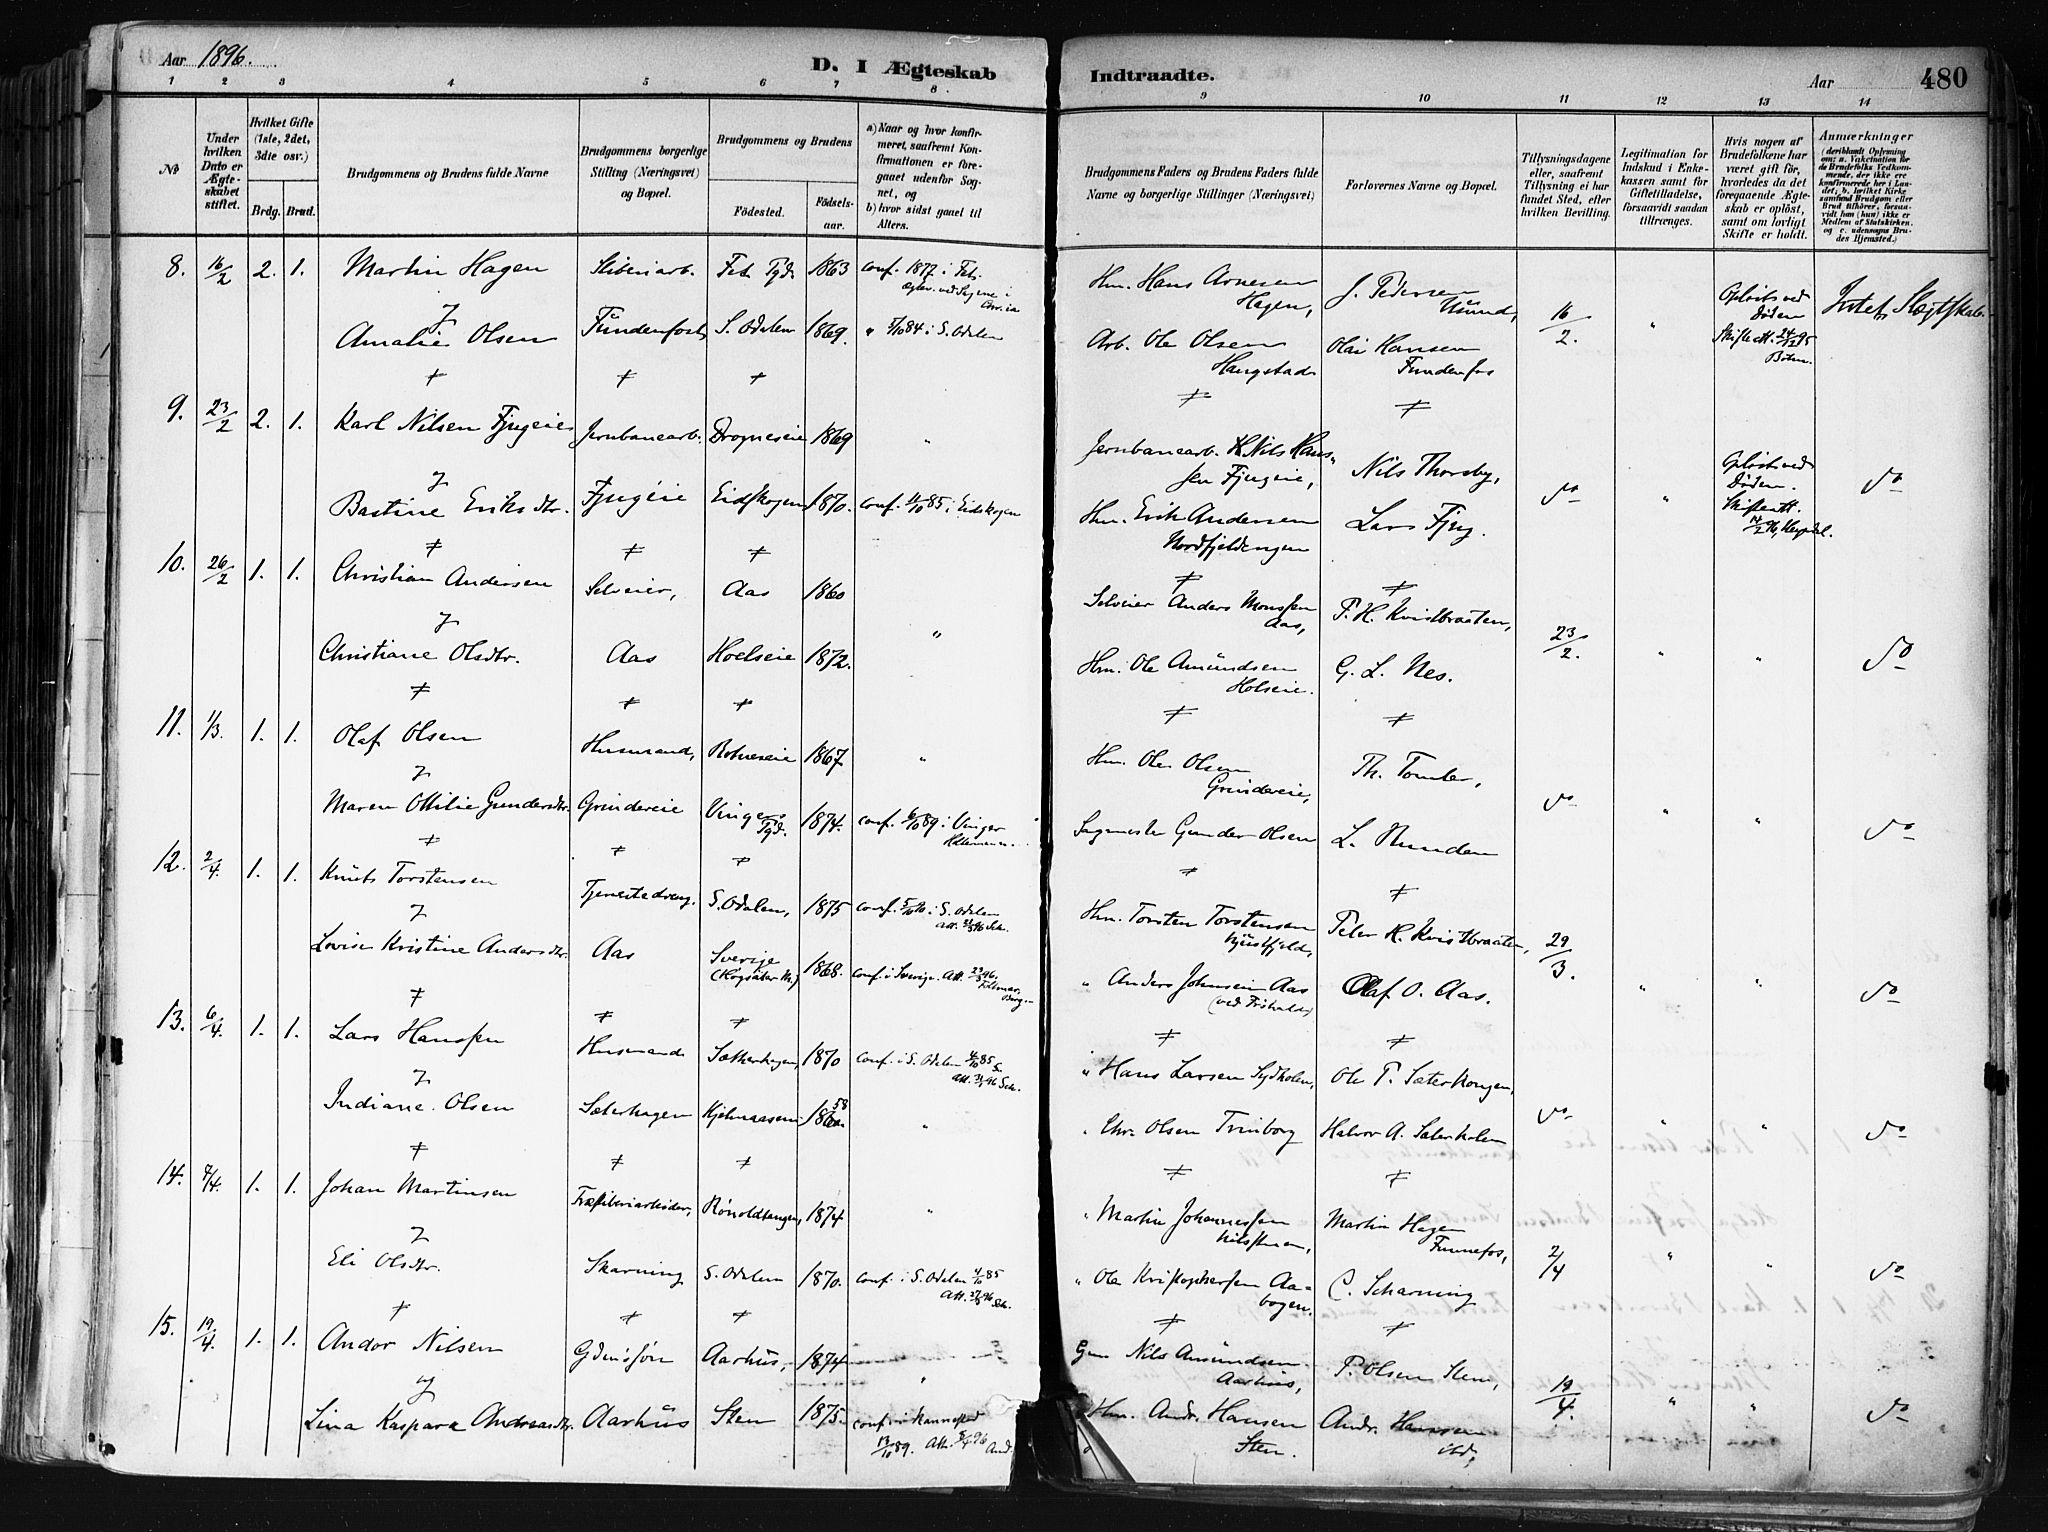 Aar 1896.
D. I Ægteskab Indtraadte.
Aar
480
1 2 3 4 5 6 7 8 9 10 11 12 13 14
No
Under hvilken Dato er Ægteskabet stiftet.
Hvilket Gifte (1ste, 2det, 3die osv.)
Brdg. Brud.
Brudgommens og Brudens fulde Navne
Brudgommens borgerlige Stilling (Næringsvei) og Bopæl.
Brudgommens og Brudens
Fødested.
Fødselsaar.
a) Naar og hvor konfirmeret, saafremt Konfirmationen er foregaaet udenfor Sognet, og
b) hvor sidst gaaet til Alters.
Brudgommens Faders og Brudens Faders fulde Navne og borgerlige Stillinger (Næringsvei)
Forlovernes Navne og Bopæl.
Tillysningsdagene eller, saafremt Tillysning ei har fundet Sted, efter hvilken Bevilling.
Legitimation for Indskud i Enkekassen samt for Giftetilladelse, forsaavidt saadan tiltrænges.
Hvis nogen af Brudefolkene har været gift før, hvorledes da det foregaaende Ægteskab er opløst, samt om lovligt Skifte er holdt.
Anmærkninger
8. 16/2 2. 1. Martin Hagen Sliberiarb. Feb. Tgd. 1863 conf. 1877 i Feb. Hm. Hans Arnesen Hagen, J. Pedersen 16/2. " Opløst ved Døden Intet Slægtskab.
&
Amalie Olsen S. Odalen 1869. " 5/10 84 i S. Odalen Arb. Ole Olsen Haugstad Olai Hansen Fundenfos
9. 23/2 2. 1. Karl Nilsen Fjugeie Jernbanearb. 1869 " Jernbanearb. Nils Hanssen Fjugeie, Nils Thorsby, do " Opløst ved Døden. do
&
Bastine Eriksdtr. Fjugeie Eidskogen 1870. conf. 4/10 85 i Eidskogen Hm. Erik Andersen Nordfjeldengen Lars Fjug.
10. 26/2 1. 1. Christian Andersen Selveier, Aas 1860 " Selveier Anders Monssen Aas, P. H. Kvistbraaten, 23/2. " " do
&
Christiane Olsdtr. Aas Hoelseie 1872. Hm. Ole Amundsen Holseie. G. L. Nes.
11. 1/3. 1. 1. Olaf Olsen Husmand, 1867 " Hm. Ole Olsen Grindereie, Th. Tomter, do " " do
&
Maren Ottilie Gundersdtr. Grindereie Vinger Tgd. 1874. conf. 6/10 89 i Vinger Sagmester Gunder Olsen
12. 2/4. 1. 1. Knut Torstensen Tjenestedreng. S. Odalen, 1875 conf. 5/10 90 i S. Odalen Hm. Torsten Torstensen Peter H. Kvistbraaten, 29/3. " " do
&
Lovise Kristine Andersdtr. Aas Sverige 1868. conf. i Sverige. " Anders Johnsen Aas Olaf O. Aas.
13. 6/4. 1. 1. Lars Hanssen Husmand Sætterhagen, 1870 conf. i S. Odalen 4/10 85 " Hans Larsen Sydholen, Ole T. Sæterhougen, do " " do
&
Indiane Olsen Sæterhagen Kjelmaasen 1858 " " Chr. Olsen Trinborg Halvor A. Sæterholen
14. 7/4. 1. 1. Johan Martinsen Træsliberiarbeider, Rønoldtangen, 1874 " " Martin Johannessen Martin Hagen Funnefos, 2/4 " " do
&
Eli Olsdtr. Skarning S. Odalen 1870. conf. i S. Odalen 4/10 85 " Ole Kristophersen Aabogen. C. Scharning
15. 19/4 1. 1. Andor Nilsen Gdmssøn Aarhus, 1874 " Gm Nils Amundsen Aarhus, P. Olsen Sten, 19/4. " " do
&
Lina Kaspara Andreasdtr. Aarhus Sten 1875. 13/10 89. Hm. Andr. Hansen Sten. Andr. Hanssen ibd.